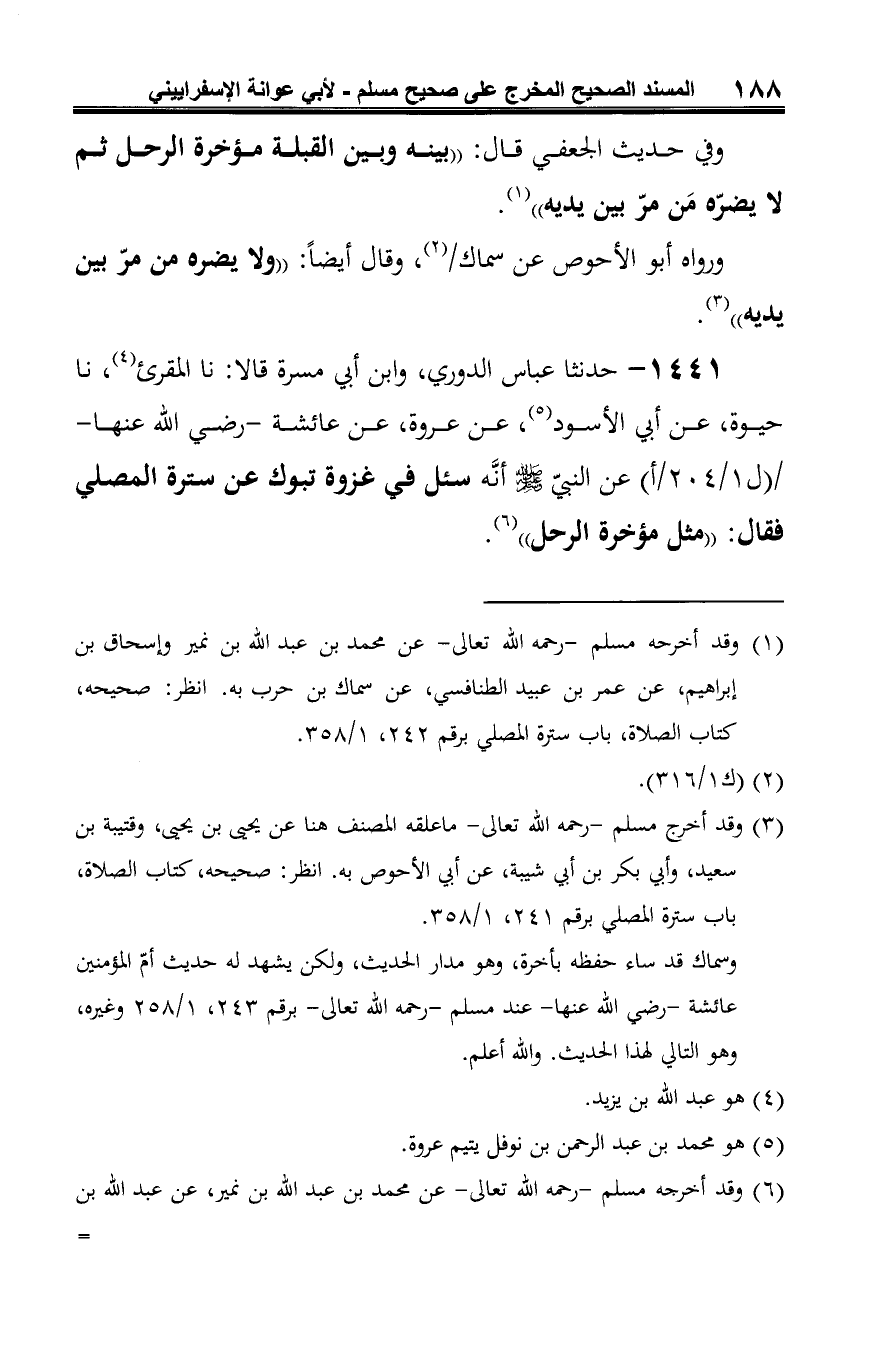 ١٨٨ المسند الصحيح المخرج على صحيح مسلم - لأبي عوانة الإسفراييني
وفي حديث الجعفي قال: ((بينه وبين القبلة مؤخرة الرحل ثم
لا يضرّه مَن مرّ بين يديه))(١).
ورواه أبو الأحوص عن سماك/(٢)، وقال أيضاً: ((ولا يضره من مرّ بين
يديه))(٣).
١٤٤١- حدنثا عباس الدوري، وابن أبي مسرة قالا: نا المقرئ(٤)، نا
حيوة، عن أبي الأسود(٥)، عن عروة، عن عائشة -رضي الله عنها-
/(ل٢٠٤/١/أ) عن النبيّ ﷺ أنَّه سئل في غزوة تبوك عن سترة المصلي
فقال: ((مثل مؤخرة الرحل))(٦).
(١) وقد أخرحه مسلم -رحمه الله تعالى- عن محمد بن عبد الله بن نمير وإسحاق بن
إبراهيم، عن عمر بن عبيد الطنافسي، عن سماك بن حرب به. انظر: صحيحه،
كتاب الصلاة، باب سترة المصلي برقم ٢٤٢، ٣٥٨/١.
(٢) (ك٣١٦/١).
(٣) وقد أخرج مسلم -رحمه الله تعالى- ماعلقه المصنف هنا عن يحيى بن يحيى، وقتيبة بن
سعيد، وأبي بكر بن أبي شيبة، عن أبي الأحوص به. انظر: صحيحه، كتاب الصلاة،
باب سترة المصلي برقم ٢٤١، ٣٥٨/١.
وسماك قد ساء حفظه بأخرة، وهو مدار الحديث، ولكن يشهد له حديث أمّ المؤمنين
عائشة -رضي الله عنها- عند مسلم -رحمه الله تعالى- برقم ٢٤٣، ٢٥٨/١ وغيره،
وهو التالي لهذا الحديث. والله أعلم.
(٤) هو عبد الله بن يزيد.
(٥) هو محمد بن عبد الرحمن بن نوفل يتيم عروة.
(٦) وقد أخرجه مسلم -رحمه الله تعالى- عن محمد بن عبد الله بن نمير، عن عبد الله بن
=